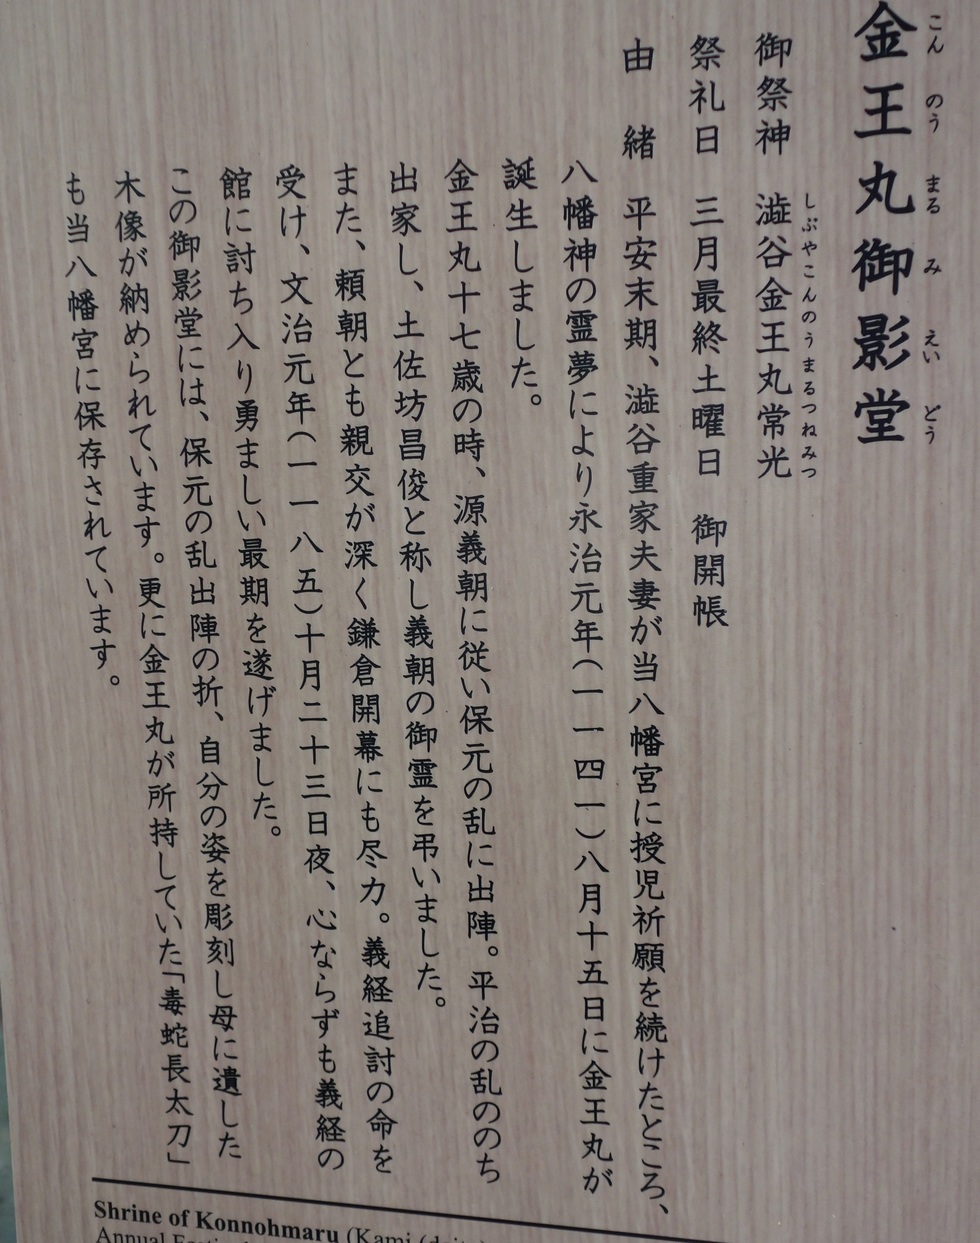 金王丸御影堂
こんのうまるみえいどう
御祭神 澁谷金王丸常光
しぶやこんのうまるつねみつ
祭礼日 三月最終土曜日 御開帳
由緒 平安末期、澁谷重家夫妻が当八幡宮に授児祈願を続けたところ、
八幡神の霊夢により永治元年(一一四一)八月十五日に金王丸が
誕生しました。
金王丸十七歳の時、源義朝に従い保元の乱に出陣。平治の乱ののち
出家し、土佐坊昌俊と称し義朝の御霊を弔いました。
また、頼朝とも親交が深く鎌倉開幕にも尽力。義経追討の命を
受け、文治元年(一一八五)十月二十三日夜、心ならずも義経の
館に討ち入り勇ましい最期を遂げました。
この御影堂には、保元の乱出陣の折、自分の姿を彫刻し母に遺した
木像が納められています。更に金王丸が所持していた「毒蛇長太刀」
も当八幡宮に保存されています。
Shrine of Konnohmaru (Kami (deity)
Annual